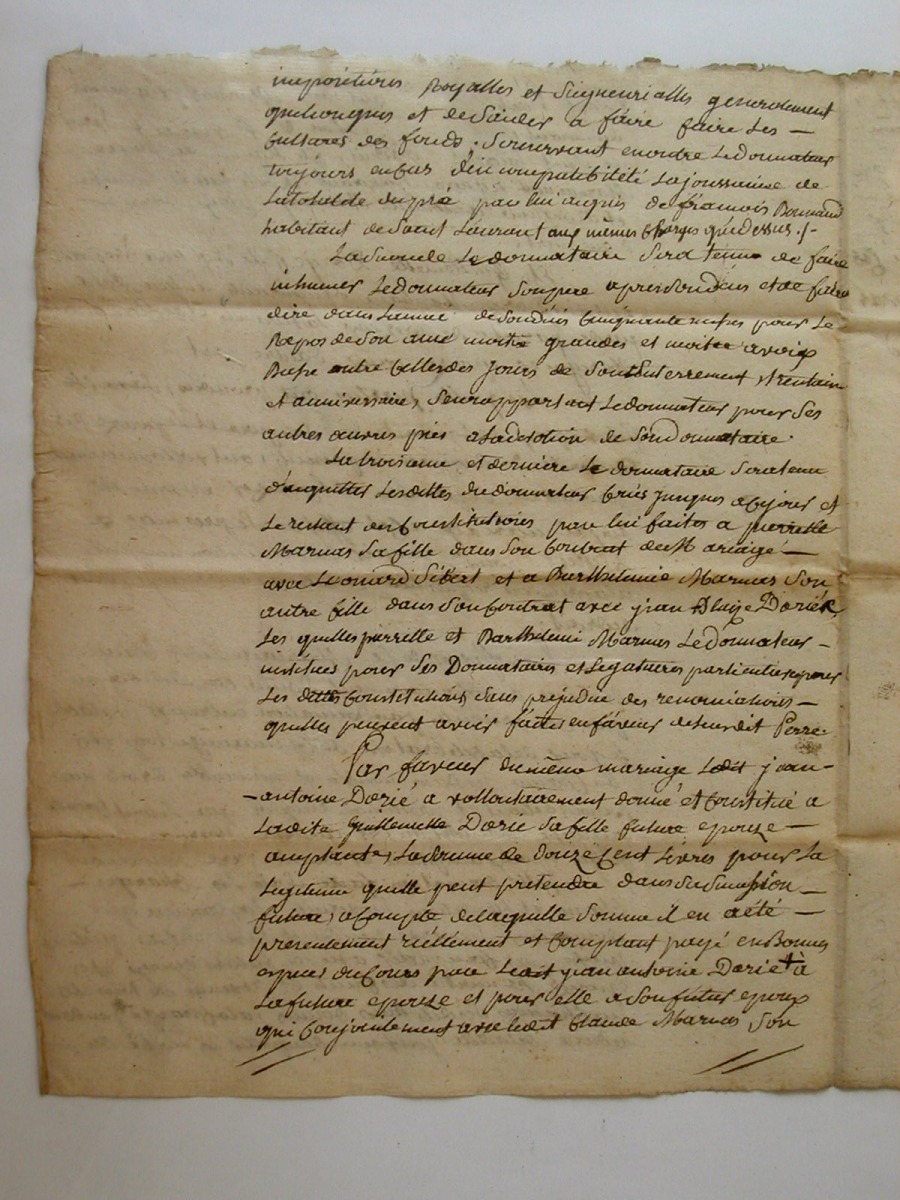 impositions Royalles et Seigneurialles generalement
quelconques et de veiller a faire faire les —
cultures des fonds; Se reservant encordre Ledonnateur
toujours en cas d'incompatibilité La joüissance de
La totalité du pré par lui acquis de françois Bonnand
habitant de Saint Laurant aux mêmes Charges que dessus./-
La Seconde Le donnataire Sera tenu de faire
inhumer Ledonnateur Son pere apres Son deces et de faire
dire dans L'année de Son deces Cinquante messes pour Le
Repos de Son ame moitié grandes et moitié a voix
Basse outre Celles des Jours de Son Enterrement, trentain
et anniversaire, S'en rapportant Ledonnateur pour Ses
autres œuvres pies a La devotion de Son donnataire.
La troisieme et derniere Le donnataire Sera tenu
d'acquitter Les dettes du donnateur Crées Jusques a Ce jour et
Le restant des Constitutions par lui faites a pierrette
Marnas Sa fille dans Son Contrat de Mariage —
avec Leonard Sibert et a Barthelemie Marnas Son
autre fille dans Son Contrat avec jean Blaize Dorié,
Les quelles pierrette et Barthelemie Marnas Le donnateur -
institue pour Ses Donnataires et Legataires particulieres pour
Les dittes Constitutions, Sans prejudice des renonciations —
qu'elles peuvent avoir faittes en faveur de leur dit Perre.
Par faveur du même mariage Ledit jean-
- antoine Dorié a vollontairement donné et Constitué a
Ladite Guillemette Dorié Sa fille future epouze —
acceptante, La Somme de douze Cent Livres pour La
Legitime qu'elle peut pretendre dans Sa Succession —
future, a Compte de laquelle Somme il en a été —
presentement réellement et Comptant payé en Bonnes
especes du Cours par Ledit jean antoine Dorié + à
La future epouze et pour elle a Son futur epoux
qui Conjointement avec ledit Claude Marnas Son